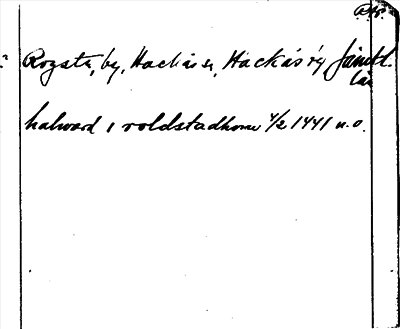 Rogsta, by, Hackås sn, Hackås rg Jämtl.
län
halward i roldstadhome 4/2 1441 n.o.